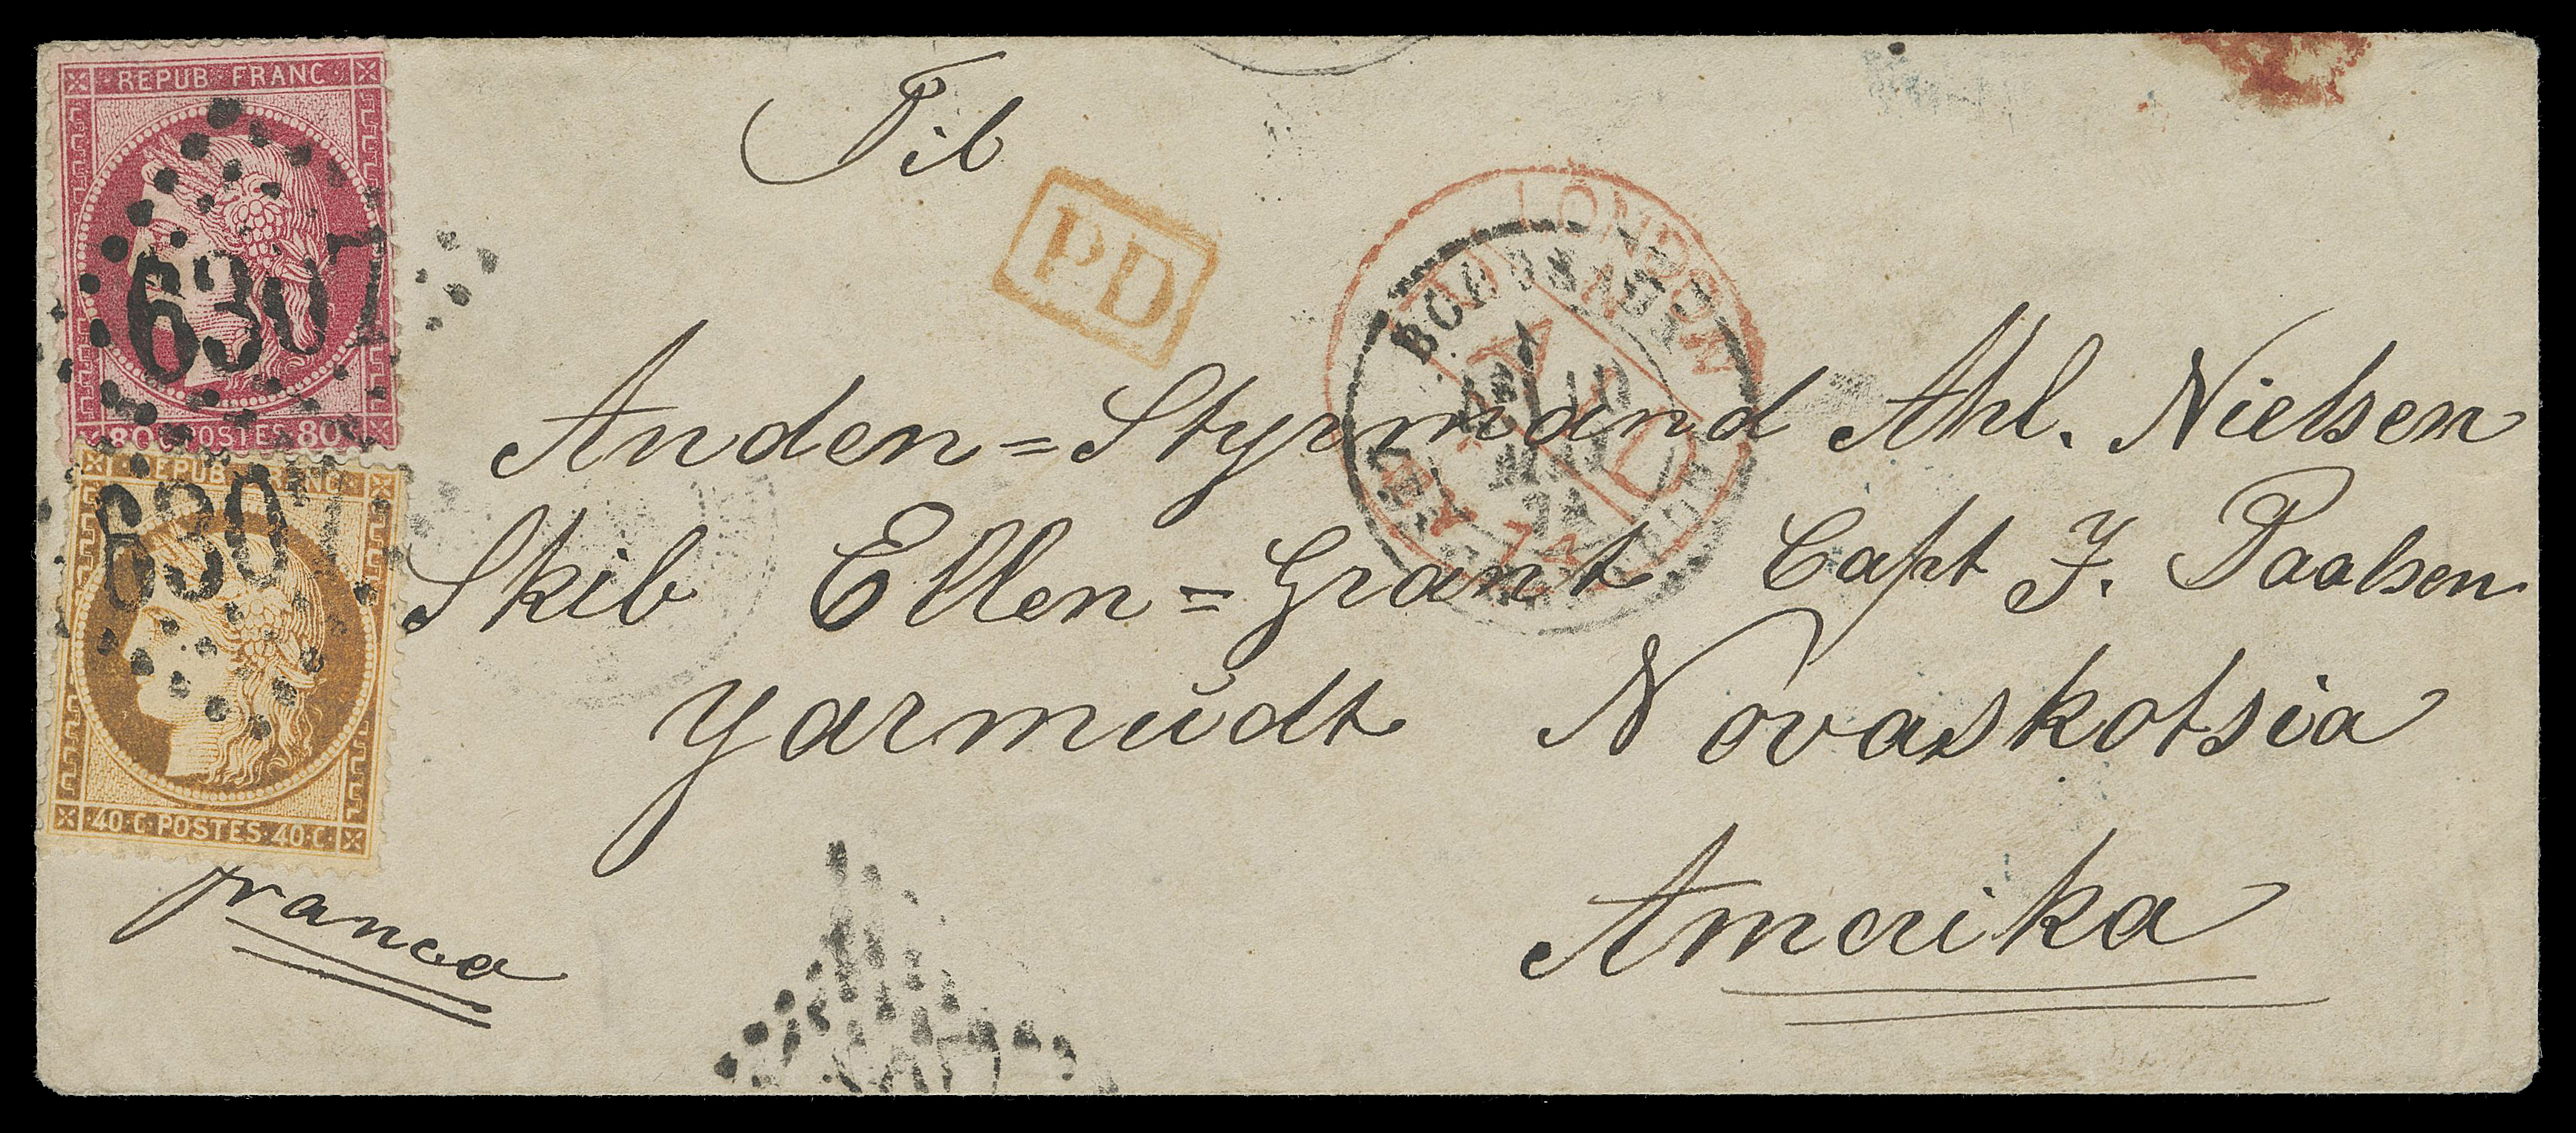 REPUB·FRANC
80 C POSTES 80
6307
REPUB·FRANC
6307
40·C·POSTES·40·C
Til
PD
LONDON
PAID
BORDEAUX
MAI
74
Anden=Styrmand Ahl. Nielsen
Skib Ellen=Grant Capt J. Paalsen
Yarmŭdt Novaskotsia
Amerika
franco